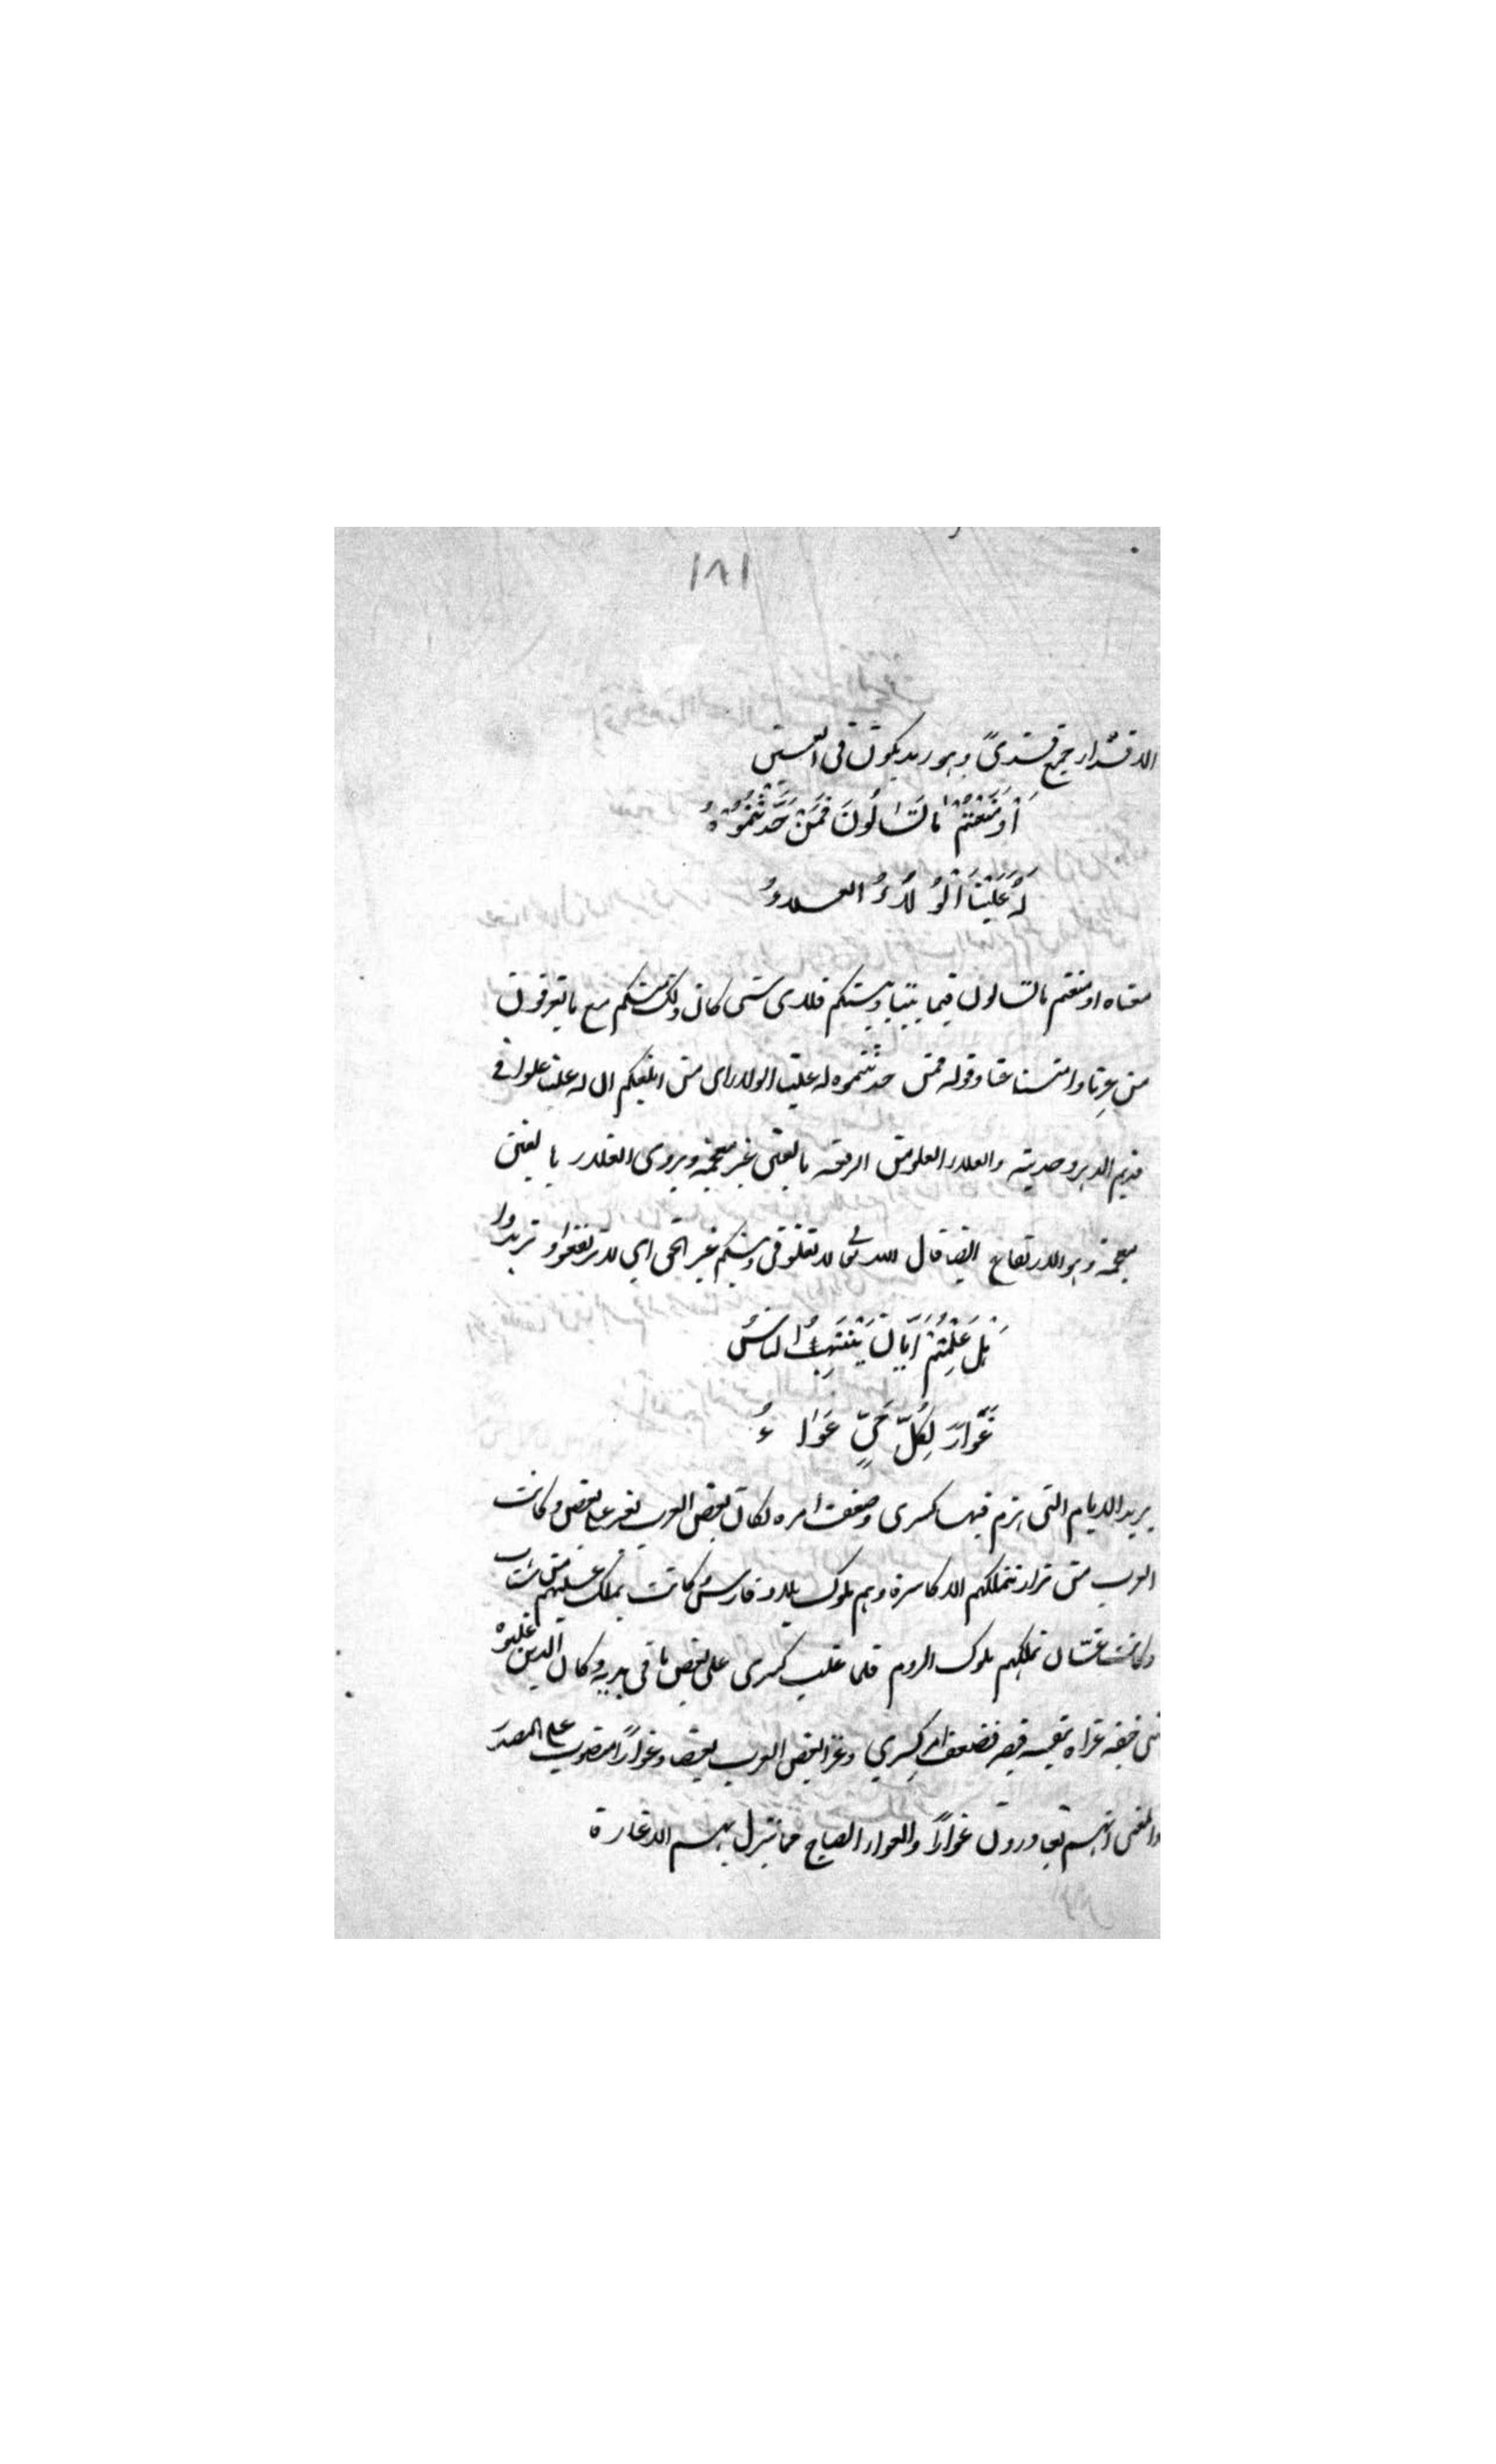 ١٨١
الاقذاء جمع قذى وهو ربد يكون فى العين
أَوْ مَنَعْتُمْ مَا تَسْأَلُونَ فَمَنْ حُدِّثْتُمُوهُ
لَهُ عَلَيْنَا الْوَلَاءُ العلاءُ
معناه او منعتم ما تسالون فيما بيننا وبينكم فلاى شى كان ذلك منكم مع ما تعرفون
من عزنا وامتناعنا وقوله فمن حدثتموه له علينا الولاء اى من ابلغكم ان له علينا علوا فى
قديم الدهر وحديثه والعلاء العلو من الرفعه بالعين غير معجمة ويروى الغلاء بالغين
معجمة وهو الارتفاع ايضا قال الله تعالى لا تغلو فى دينكم غير الحق اى لا ترتفعوا وتزيدوا
هَلْ عَلِمْتُمْ أَيَّامَ يُنْتَهَبُ النَّاسُ
غِوَارًا لِكُلِّ حَيٍّ عُوَاءُ
يريد الايام التى هزم فيها كسرى وضعف امره لكان بعض العرب يغير على بعض وكانت
العرب من نزار تتملكهم الاكاسرة وهم ملوك بلاد فارس كانت تملك عليهم من شات
وكانت غسان تملكهم ملوك الروم فلما غلب كسرى على بعض ما فى يديه وكان الذين غلبوه
بنى حنيفه غزاه بنفسه قيصر فضعف امر كسرى وغزا بعض العرب بعضا وغوارًا منصوب على المصدر
والمعنى انهم يغاورون غوارًا والعواء الصياح مما ينزل بهم الاغارة